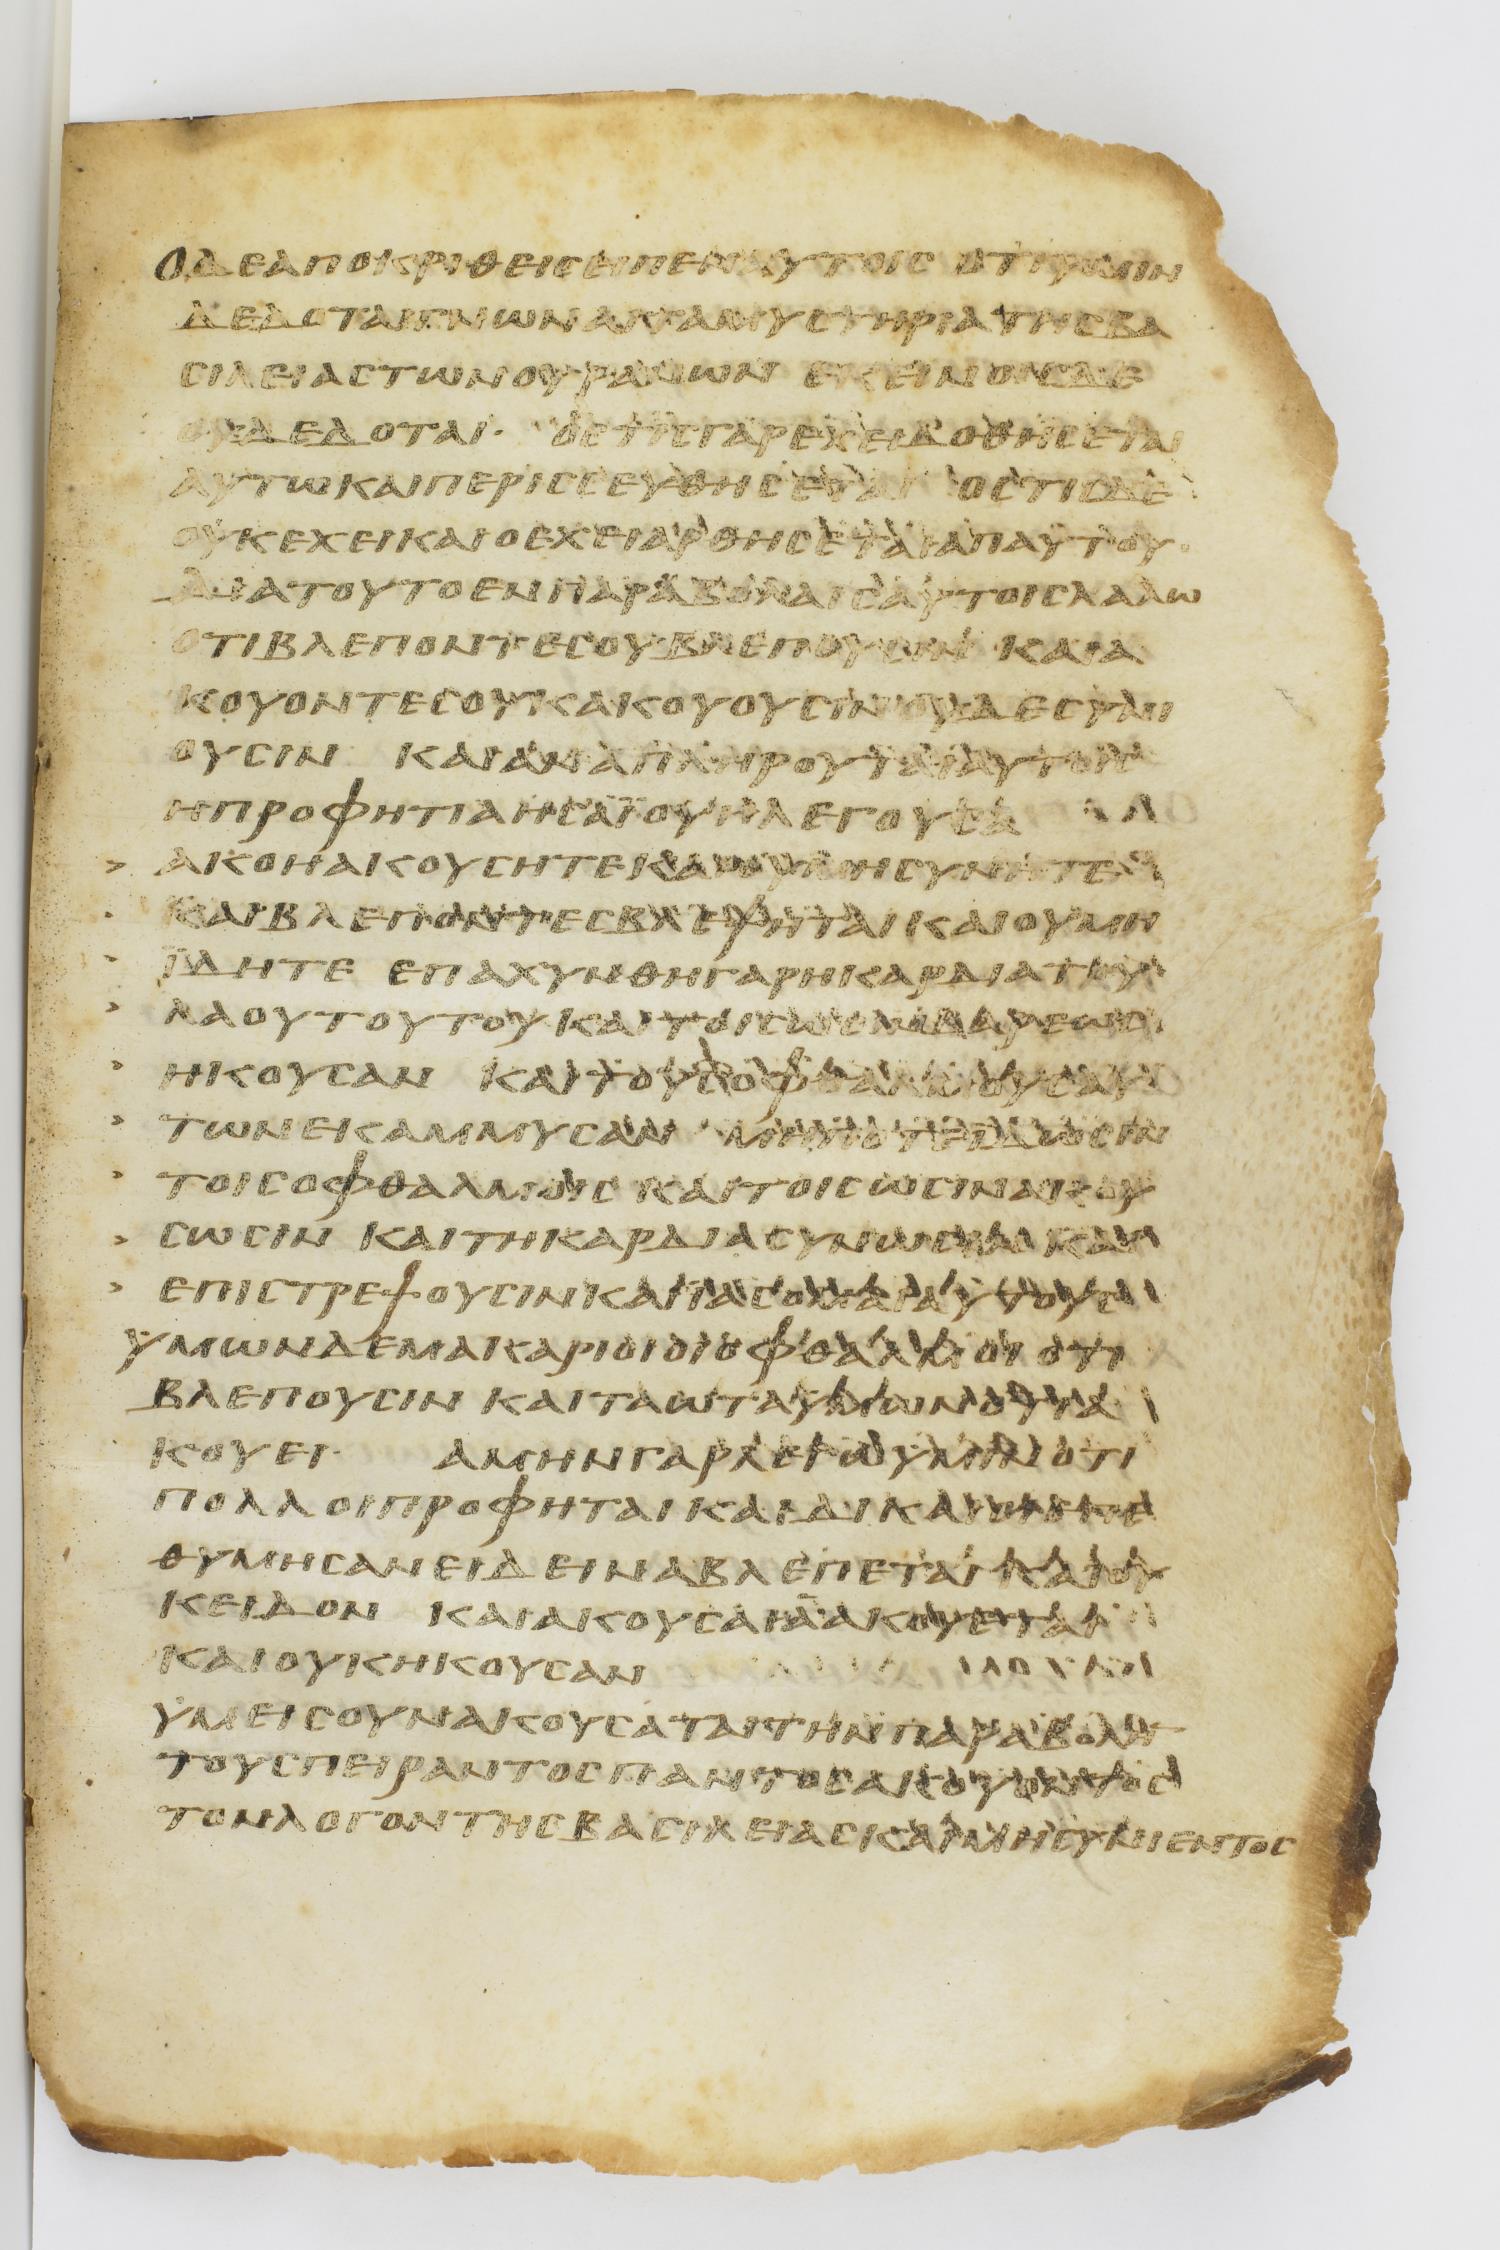 Οδεαποκριθεισειπεναυτοισοτιυμιν
δεδοταιγνωναιταμυστηριατησβα
σιλειαστωνουρανων εκεινοισδε
ουδεδοται· οστισγαρεχειδοθησεται
αυτωκαιπερισσευθησεται οστισδε
ουκεχεικαιοεχειαρθησεταιαπαυτου
διατουτοενπαραβολαισαυτοισλαλω
οτιβλεποντεσουβλεπουσιν καια
κουοντεσουκακουουσινουδεσυνι
ουσιν καιαναπληρουταιαυτοισ
ηπροφητιαησαϊουηλεγουσα
> ακοηακουσητεκαιουμησυνητε
καιβλεποντεσβλεψηταικαιουμη
ϊδητε επαχυνθηγαρηκαρδιατου
> λαουτουτουκαιτοισωσινβαρεωσ
> ηκουσαν καιτουσοφθαλμουσαυ
> τωνεκαμμυσαν μηποτεϊδωσιν
> τοισοφθαλμοισκαιτοισωσινακου
> σωσιν καιτηκαρδιασυνωσινκαι
> επιστρεψουσινκαιϊασομαιαυτουσ
ϋμωνδεμακαριοιοιοφθαλμοιοτι
βλεπουσιν καιταωταυμωνοτια
κουει· αμηνγαρλεγωυμινοτι
πολλοιπροφηταικαιδικαιοιεπε
θυμησανειδειναβλεπεταικαιου
κειδον καιακουσαιαακουεται
καιουκηκουσαν
ϋμεισουνακουσαταιτηνπαραβολην
τουσπειραντοσπαντοσακουοντοσ
τονλογοντησβασιλειασκαιμησυνιεντοσ